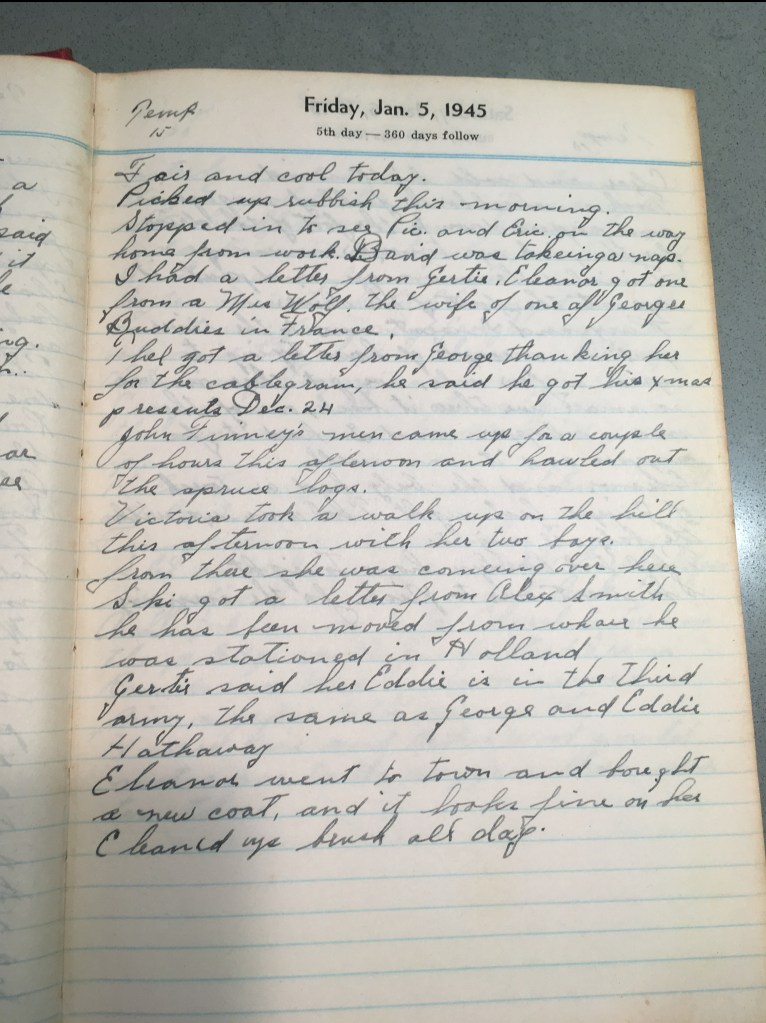 a
said
it
ng.
ar
Temp
15
Friday, Jan. 5, 1945
5th day — 360 days follow
Fair and cool today.
Picked up rubbish this morning.
Stopped in to see Pic. and Eric, on the way
home from work. David was takeing a nap.
I had a letter from Gertie. Eleanor got one
from a Mrs Wolf. the wife of one of Georges
Buddies in France.
Thel got a letter from George thanking her
for the cablegram, he said he got his xmas
presents Dec. 24
John Finney's men came up for a couple
of hours this afternoon and hawled out
the spruce logs.
Victoria took a walk up on the hill
this afternoon with her two boys.
from thare she was comeing over here
Ski got a letter from Alex Smith
he has been moved from whare he
was stationed in Holland
Gertie said her Eddie is in the third
army, the same as George and Eddie
Hathaway
Eleanor went to town and bought
a new coat, and it looks fine on her
Cleaned up brush all day.